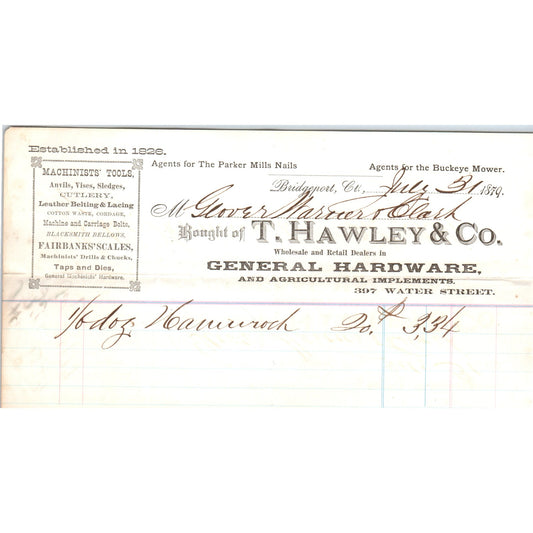 Established in 1826.
MACHINISTS' TOOLS,
Anvils, Vises, Sledges,
CUTLERY,
Leather Belting & Lacing
COTTON WASTE, CORDAGE,
Machine and Carriage Bolts,
BLACKSMITH BELLOWS.
FAIRBANKS' SCALES,
Machinists' Drills & Chucks,
Taps and Dies,
General Machinists' Hardware.
Agents for The Parker Mills Nails
Agents for the Buckeye Mower.
Bridgeport, Ct., July 31 1879.
M Glover Warner & Clark
Bought of T. HAWLEY & CO.
Wholesale and Retail Dealers in
GENERAL HARDWARE,
AND AGRICULTURAL IMPLEMENTS.
397 WATER STREET.
doz $ 3,34